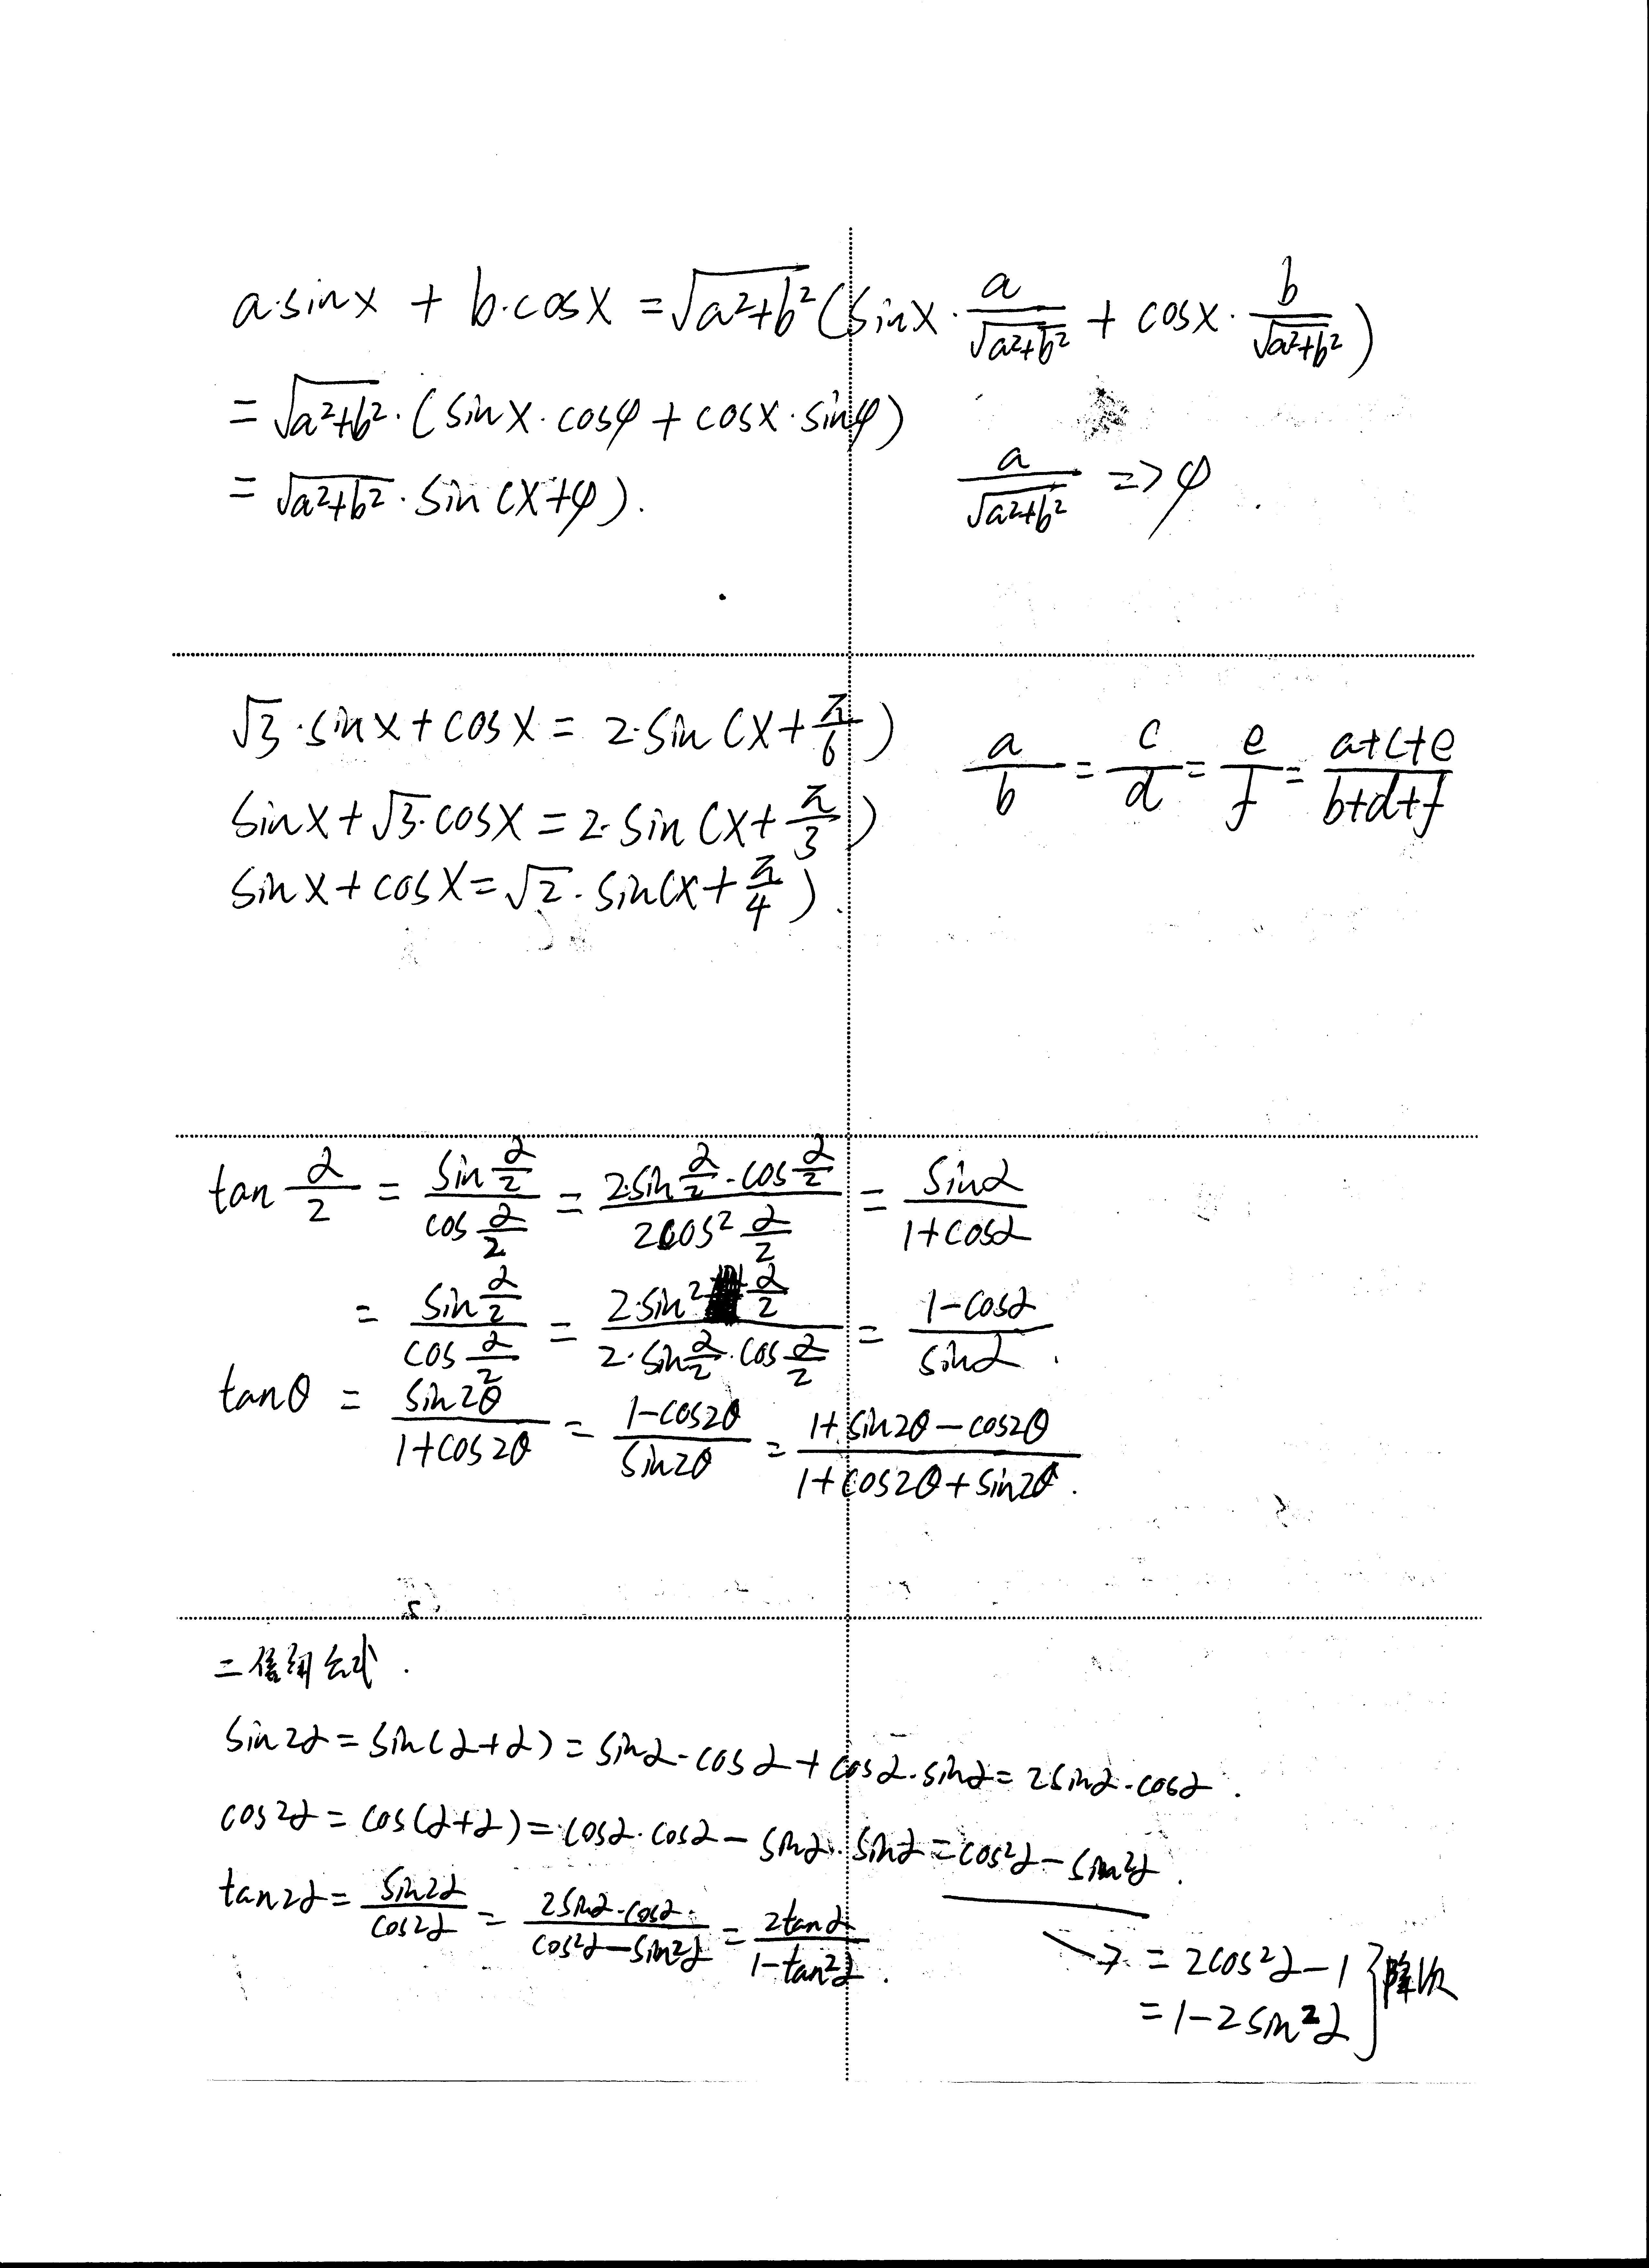 a·sinx + b·cosx = √(a²+b²) (sinx · a/√(a²+b²) + cosx · b/√(a²+b²))
= √(a²+b²) · (sinx · cosφ + cosx · sinφ)
= √(a²+b²) · sin(x+φ).
a/√(a²+b²) => φ
√3 · sinx + cosx = 2·sin(x + π/6)
sinx + √3·cosx = 2·sin(x + π/3)
sinx + cosx = √2 · sin(x + π/4).
a/b = c/d = e/f = (a+c+e)/(b+d+f)
tan α/2 = (sin α/2)/(cos α/2) = (2·sin α/2 · cos α/2)/(2cos² α/2) = sinα/(1+cosα)
= (sin α/2)/(cos α/2) = (2·sin² α/2)/(2·sin α/2 · cos α/2) = (1-cosα)/sinα.
tanθ = sin2θ/(1+cos2θ) = (1-cos2θ)/sin2θ = (1+sin2θ-cos2θ)/(1+cos2θ+sin2θ).
二倍角公式.
sin2α = sin(α+α) = sinα·cosα + cosα·sinα = 2sinα·cosα.
cos2α = cos(α+α) = cosα·cosα - sinα·sinα = cos²α - sin²α.
tan2α = sin2α/cos2α = (2sinα·cosα)/(cos²α-sin²α) = 2tanα/(1-tan²α).
→ = 2cos²α-1
= 1-2sin²α } 降次